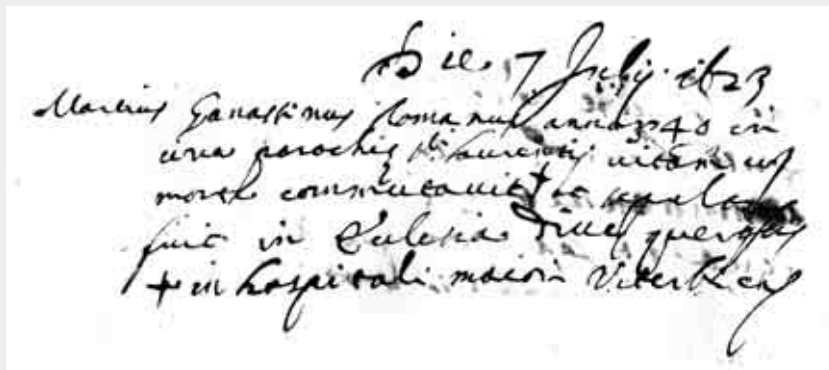 Die 7 Julij 1623
Martius Ganassinus Romanus annor 40 in
cura parochie Sti Laurentij vitam cum
morte commutavit + et sepultus
fuit in Ecclesia Dive quercus
+ in hospitali maiori Viterbien